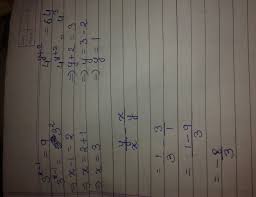 3^{x-1} = 9
3^{x-1} = 3^2
⇒ x-1 = 2
⇒ x = 2+1
⇒ x = 3
4^{y+2} = 64
4^{y+2} = 4^3
⇒ y+2 = 3
⇒ y = 3-2
⇒ y = 1
y/x - x/y
= 1/3 - 3/1
= 1-9/3
= -8/3